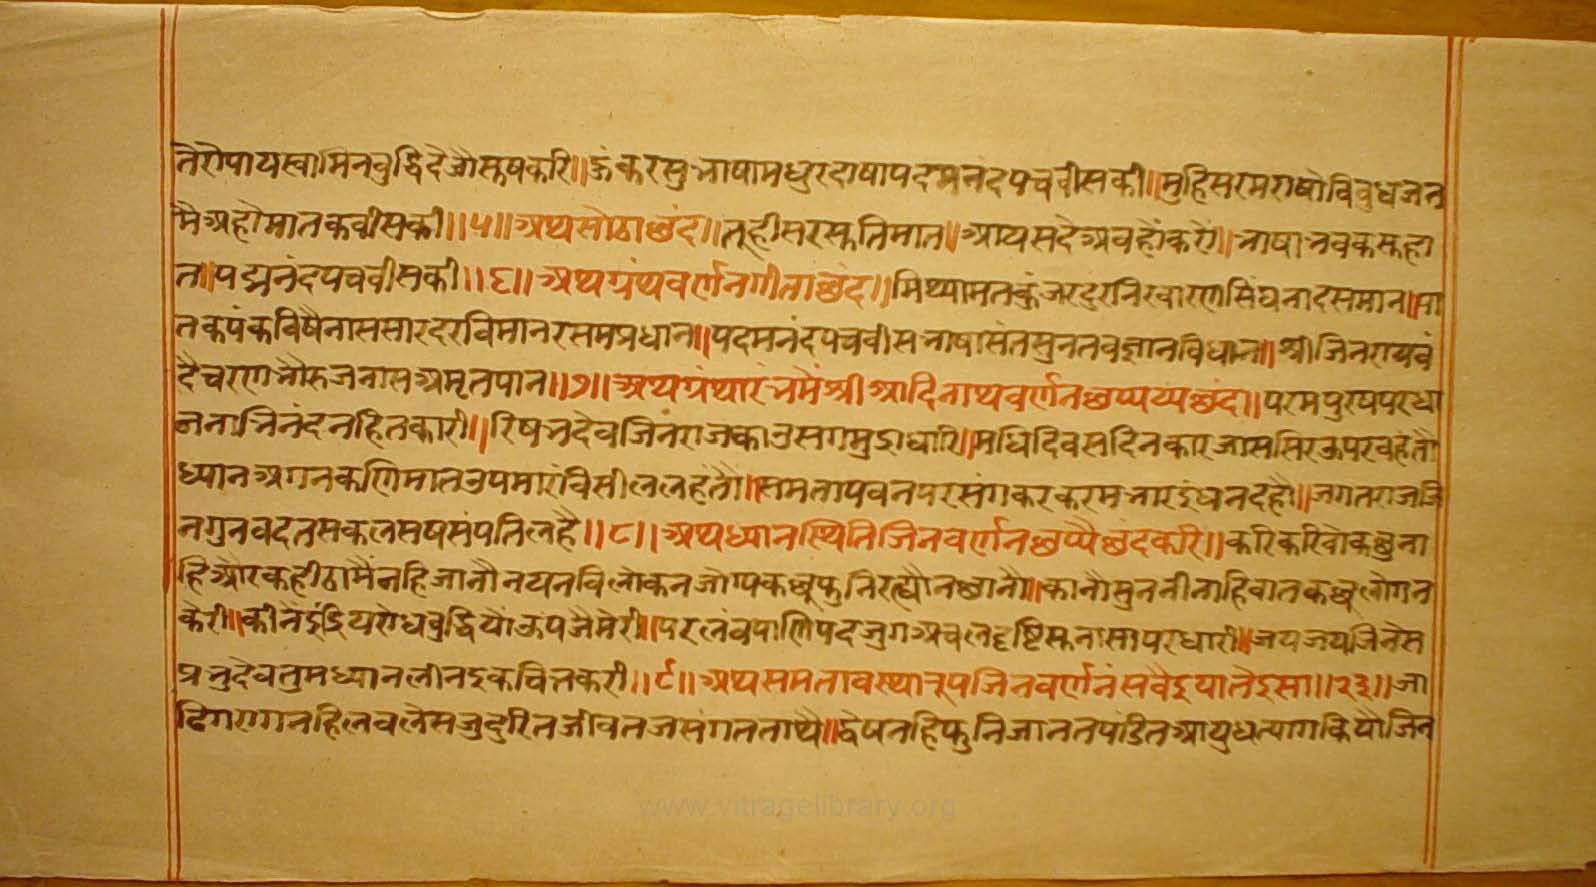 तैरोपायस्वामिनबुद्धिदैजौस्तषकरि॥ऊंकरसुभाषामधुरदाषापदमनंदपचवीसकी॥मुहिसरमराषोविबुधजन
मैअहोमातकवीसकी॥५॥अथसोठाछंद॥तूहीसरस्कतिमात॥आयसदैअवहौंकरौं॥भाषानवकस्कहा
त॥पद्मनंदपचवीसकी॥६॥अथग्रंथवर्णनगीताछंद॥मिथ्यामतकुंजरदुरनिरवारणसिंघनादसमान॥पा
तकपंकविषैनाससारदरविमानरसमप्रधान॥पदमनंदपचवीसभाषासंतसुनतवज्ञानविधान॥श्रीजिनरायवं
दैचरणभौरुजनासअमृतपान॥७॥अथग्रंथारंभमैंश्रीआदिनाथवर्णनछप्पय्यछंद॥परमपुरषपरधा
ननाभिनंदनहितकारी॥रिषभदेवजिनंराजकाउसगमुद्राधारि॥मधिदिवसदिनकारजाससिरऊपरवहंतौ
ध्यानअगनकणिमातउपमारविसीललहंतौ॥समतापवनपरसंगकरकरमभारइंधनदहौ॥जगतराजजि
नगुनवदतसकलसषसंपतिलहै॥८॥अथध्यानस्थितिजिनवर्णनछप्पैछंदकरि॥करिकरिवोकछुना
हिऔरकहीठामैंनहिजानौनयनविलोकनजोपकछूफुनिरह्यौनछानौ॥कानौसुननीनाहिवातकछूलोगन
केरी॥कीनइंद्रियरोधबुद्धियौंऊपजैमेरी॥परलंवपाणिपदजुगअचलदृष्टिस्कनासापरधारी॥जयजयजिनेस
प्रभुदैवतुमध्यानलीनइकचितकरी॥९॥अथसमतावस्थारूपजिनवर्णनंसवैइयातेइसा॥२३॥जा
ढिगरागनहिलवलेसजुदुरितजीवतजसंगततायै॥द्वेषनहिफुनिजानतपंडितआयुधत्यागकियौजिन
www.vitragelibrary.org